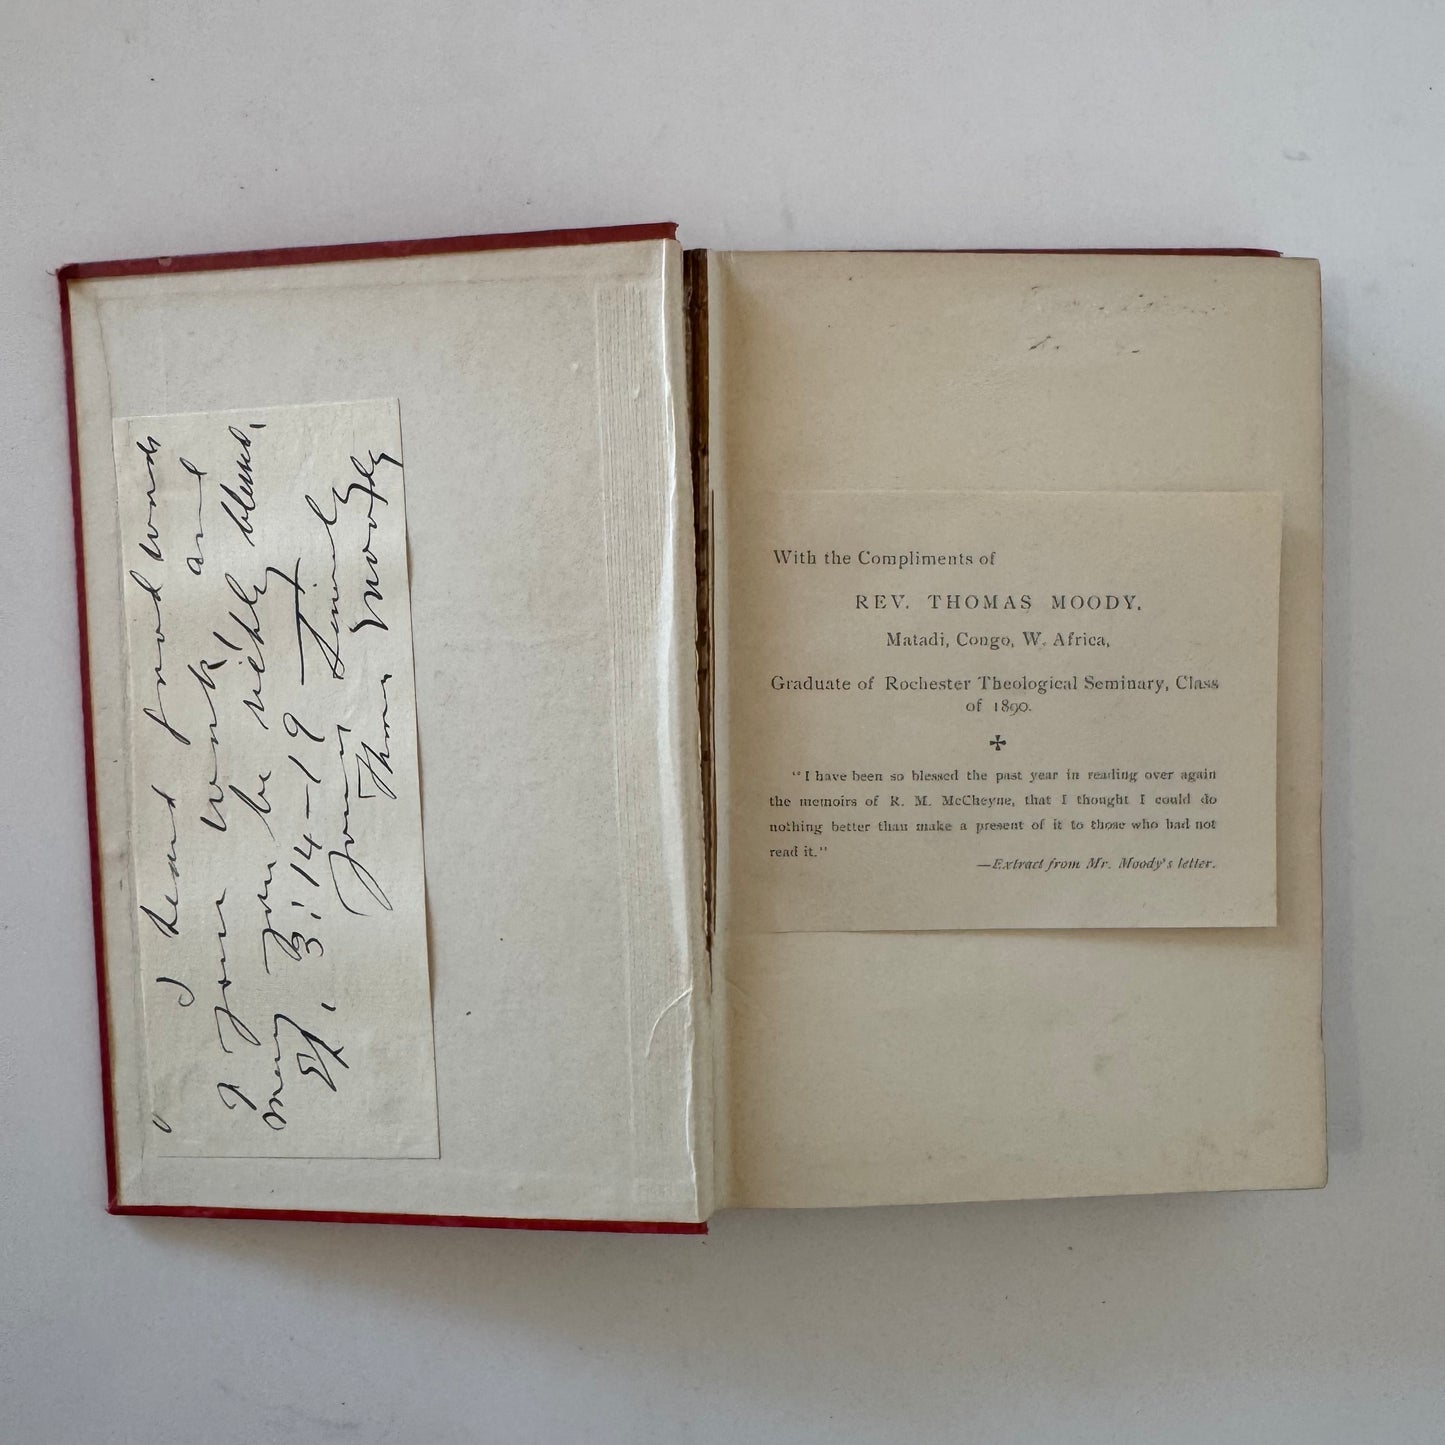 I heard good words
of your work and
may you be richly blessed.
Ep. 3:14-19
Yours Sincerely
Thomas Moody
With the Compliments of
REV. THOMAS MOODY.
Matadi, Congo, W. Africa,
Graduate of Rochester Theological Seminary, Class
of 1890.
"I have been so blessed the past year in reading over again
the memoirs of R. M. McCheyne, that I thought I could do
nothing better than make a present of it to those who had not
read it."
—Extract from Mr. Moody's letter.